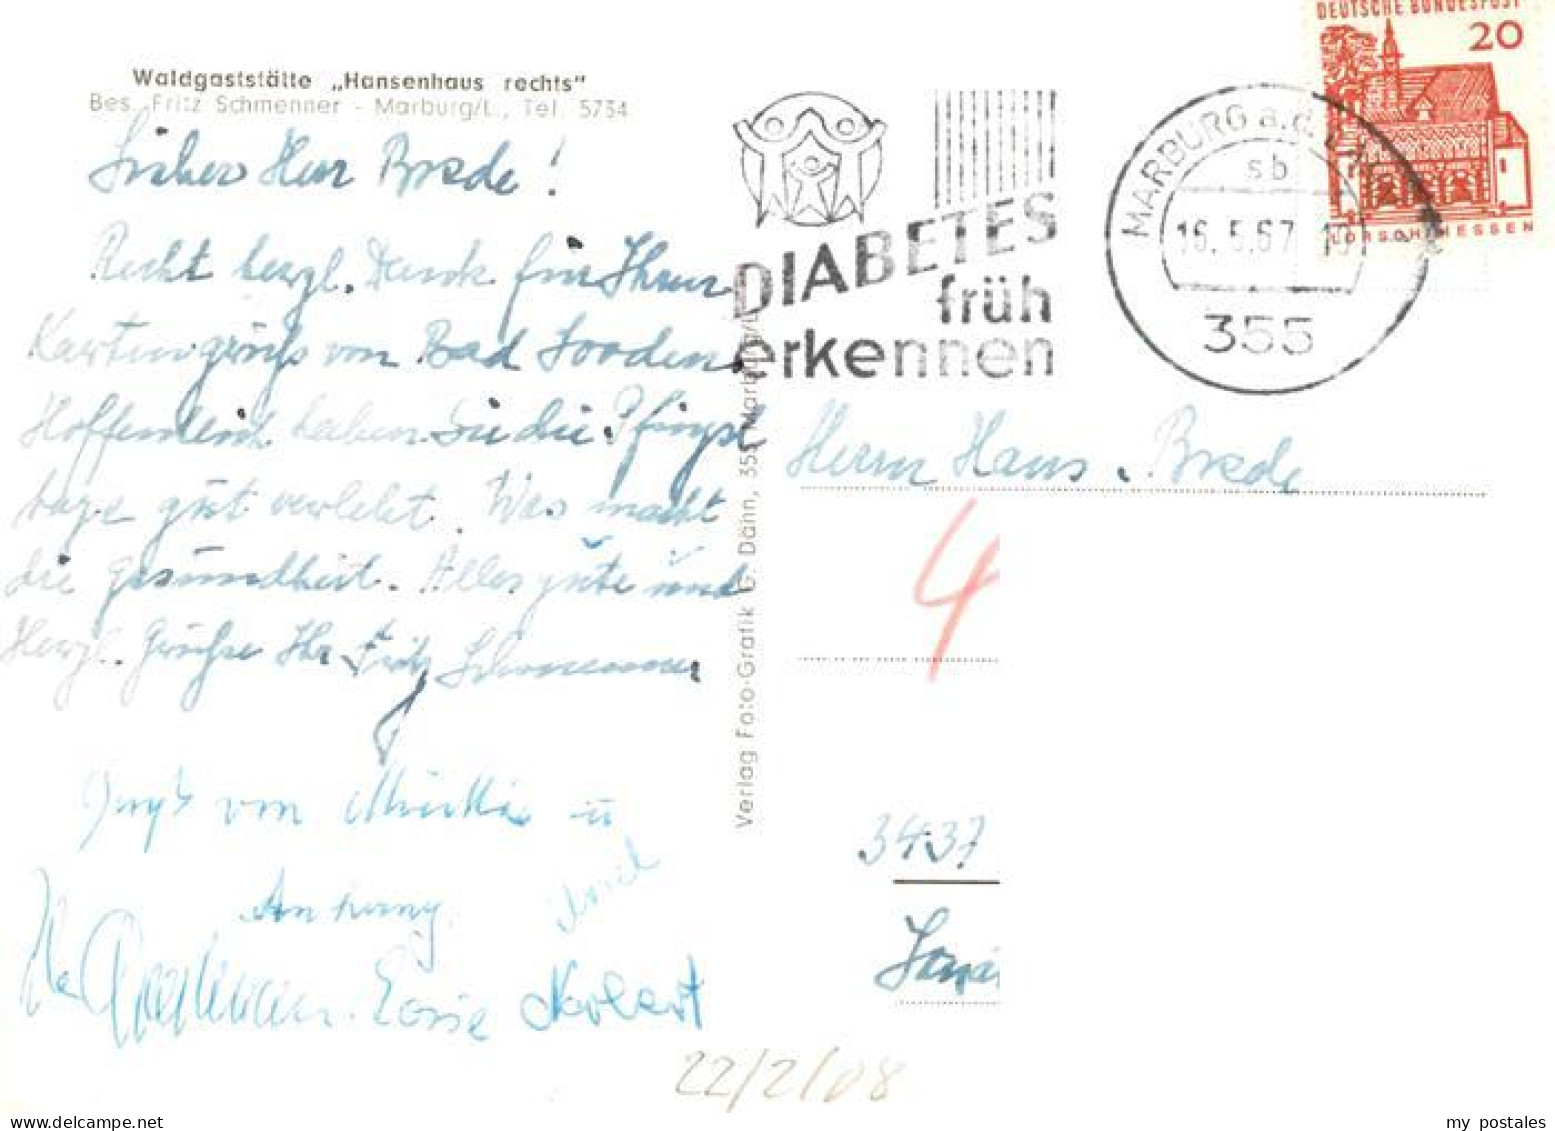 Waldgaststätte „Hansenhaus rechts"
Bes. Fritz Schmenner - Marburg/L., Tel. 5734
Lieber Herr Brede!
Recht herzl. Dank für Ihren
Kartengruß von Bad Sooden
Hoffentlich haben Sie die Pfingst
tage gut verlebt. Was macht
die Gesundheit. Alles gute und
Herzl. Grüße Ihr Fritz Schmenner
Gruß von u
Anhang
Norbert
Verlag Foto-Grafik G. Dänn, 355 Marburg/L.
DIABETES
früh
erkennen
MARBURG a.d.
sb
16.5.67
355
DEUTSCHE BUNDESPOST
20
LORSCH/HESSEN
Herrn Hans Brede
4
3437
22/2/08
my postales